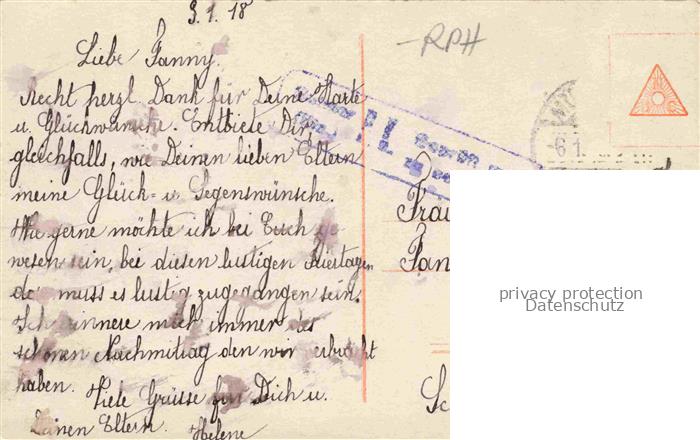 3.1.18
Liebe Fanny.
Recht herzl. Dank für Deine Karte
u. Glückwünsche. Entbiete Dir
gleichfalls, wie Deinen lieben Eltern
meine Glück- u. Segenswünsche.
Wie gerne möchte ich bei Euch ge
wesen sein, bei diesen lustigen Feiertagen
da muss es lustig zugegangen sein.
Ich erinnere mich immer des
schönen Nachmittag den wir verbracht
haben.
Viele Grüsse für Dich u.
Deinen Eltern.
Helene
RPH
6 1
Frau
Fan
privacy protection
Datenschutz
Sc